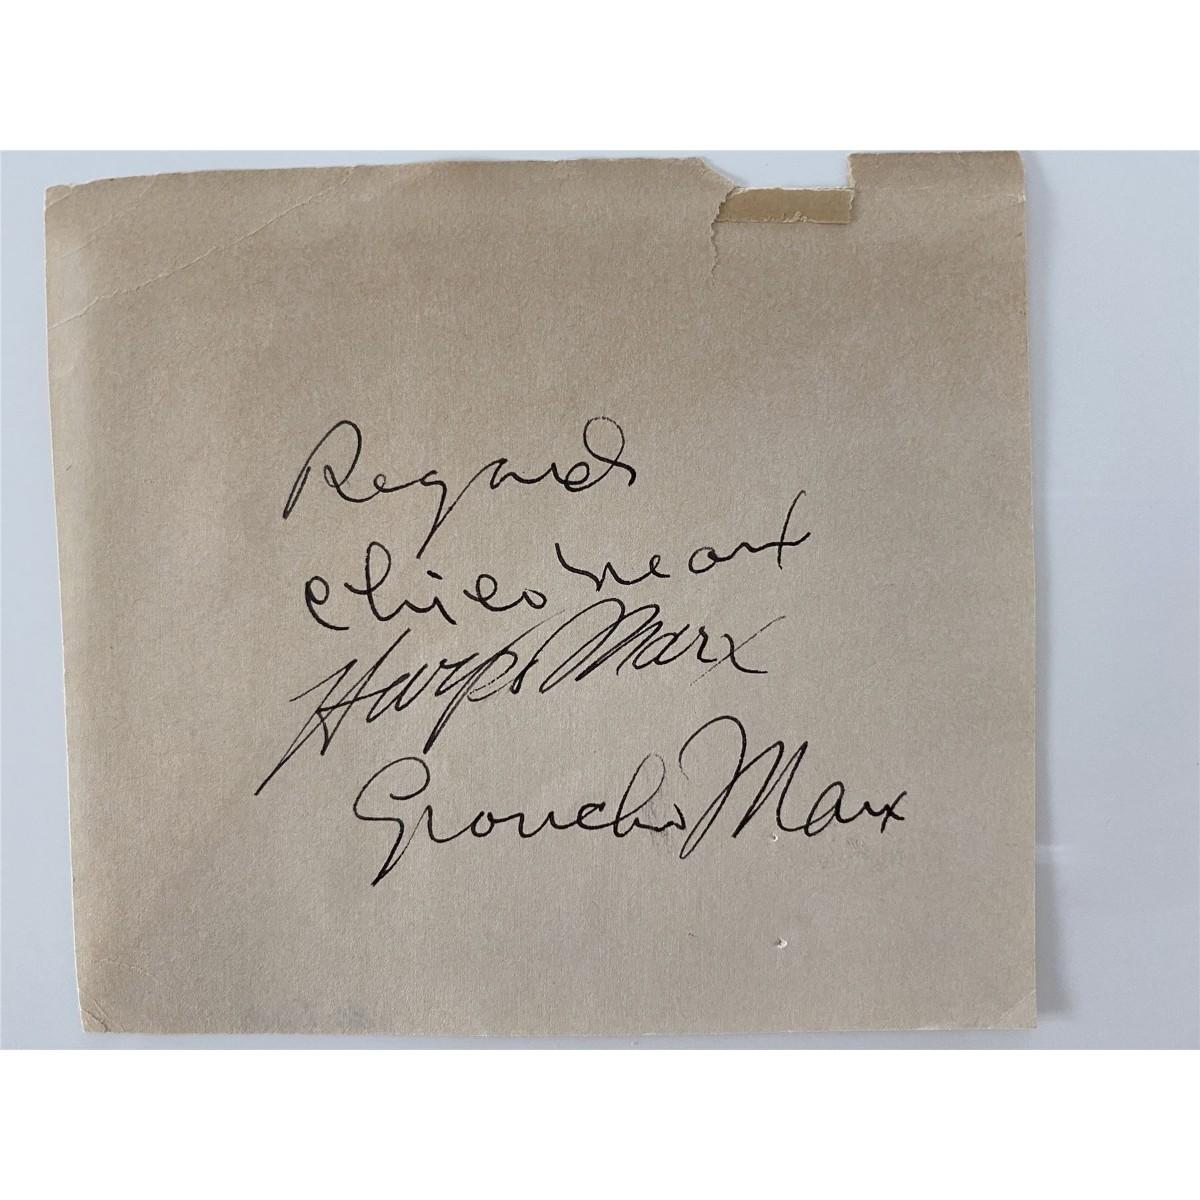 Regards
Chico Marx
Harpo Marx
Groucho Marx